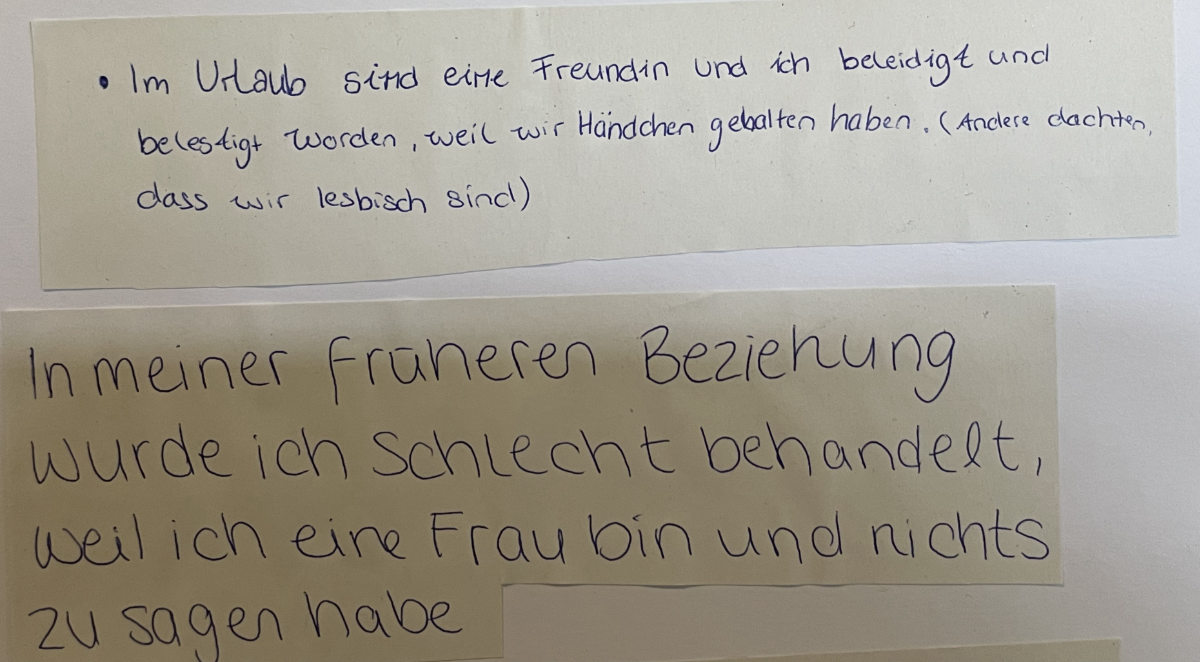 • Im Urlaub sind eine Freundin und ich beleidigt und
belestigt worden, weil wir Händchen gehalten haben. (Andere dachten,
dass wir lesbisch sind)
In meiner früheren Beziehung
wurde ich schlecht behandelt,
weil ich eine Frau bin und nichts
zu sagen habe